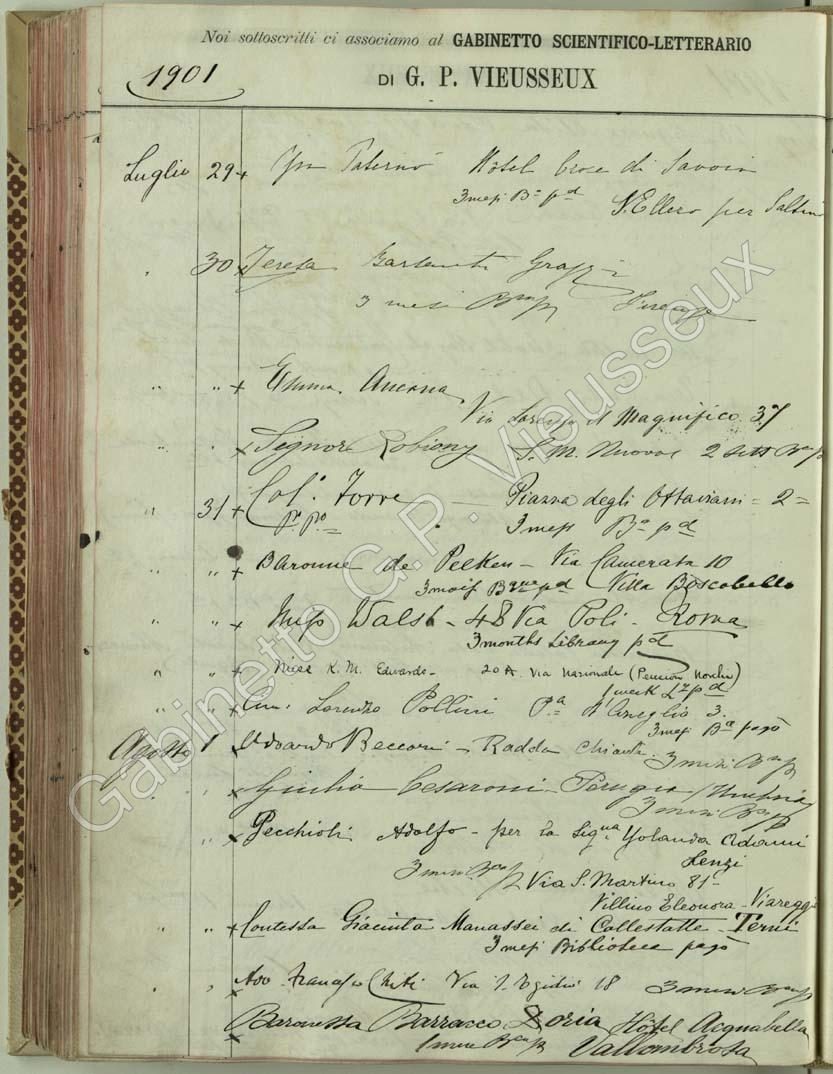 Noi sottoscritti ci associamo al GABINETTO SCIENTIFICO-LETTERARIO
1901 DI G. P. VIEUSSEUX
Luglio 29 Paternò Hôtel Croce di Savoia
3 mesi Bª pd S. Ellero per Saltino
" 30 Teresa Grazzi
3 mesi Firenze
" " Emma Ancona
Via Lorenzo il Magnifico 37
" " Signor Robiony S. M. Nuova 2
" 31 Col.º Torre — Piazza degli Ottaviani = 2 =
3 mesi Bª pd
" " Baronne de Pelken - Via Camerata 10
3 mois Bque pd Villa Boscobello
" " Miss Walsh - 48 Via Poli - Roma
3 months Library pd
" " Miss K. M. Edwards - 20 A. Via Nazionale (Pension)
1 week pd
" " Lorenzo Pollini Pª D'Azeglio 3.
3 mesi Bª pagò
Agosto 1 Odoardo Beccari - Radda Chianti. 3 mesi
" " Giulia Cesaroni - Perugia Umbria
3 mesi
" " Pecchioli Adolfo - per la Sigª Yolanda Adami
Lenzi
3 mesi Via S. Martino 81 -
Villino Eleonora - Viareggio
" " Contessa Giacinta Manassei di Collestatte - Terni
3 mesi Biblioteca pagò
" " Avv. Francesco Chiti Via S. Egidio 18 3 mesi
Baronessa Barracco Doria Hôtel Acquabella
1 mese Vallombrosa
Gabinetto G.P. Vieusseux